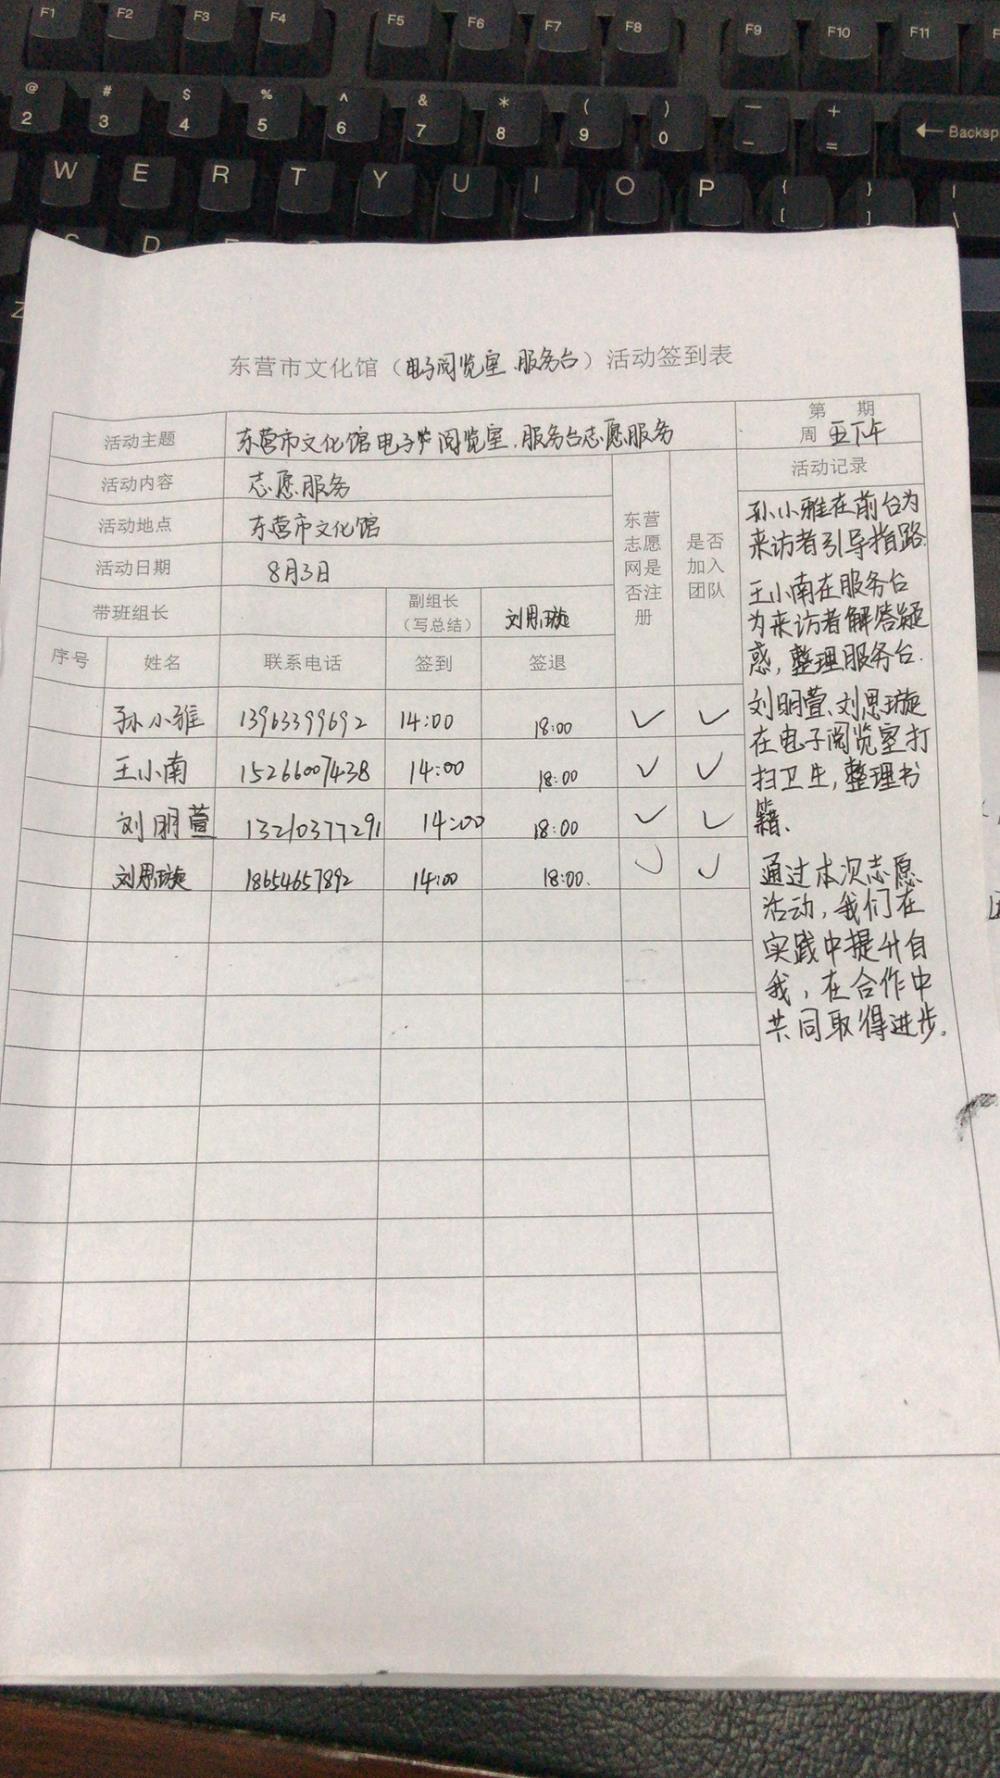 F1 F2 F3 F4 F5 F6 F7 F8 F9 F10 F11
@ # $ % ^ & * ( ) — +
2 3 4 5 6 7 8 9 0 - =
Backsp
W E R T Y U I O P { } |
[ ] \
S D
Z
东营市文化馆（电子阅览室、服务台）活动签到表
活动主题 东营市文化馆电子阅览室、服务台志愿服务
第 期
周 五下午
活动内容 志愿服务
活动地点 东营市文化馆
活动日期 8月3日
带班组长
副组长
（写总结）
刘思璇
东营
志愿
网是
否注
册
是否
加入
团队
序号 姓名 联系电话 签到 签退
孙小雅 13963399692 14:00 18:00 ✓ ✓
王小南 15266007438 14:00 18:00 ✓ ✓
刘明萱 13210377291 14:00 18:00 ✓ ✓
刘思璇 18654657892 14:00 18:00. ✓ ✓
活动记录
孙小雅在前台为
来访者引导指路.
王小南在服务台
为来访者解答疑
惑，整理服务台.
刘明萱、刘思璇
在电子阅览室打
扫卫生，整理书
籍.
通过本次志愿
活动，我们在
实践中提升自
我，在合作中
共同取得进步.